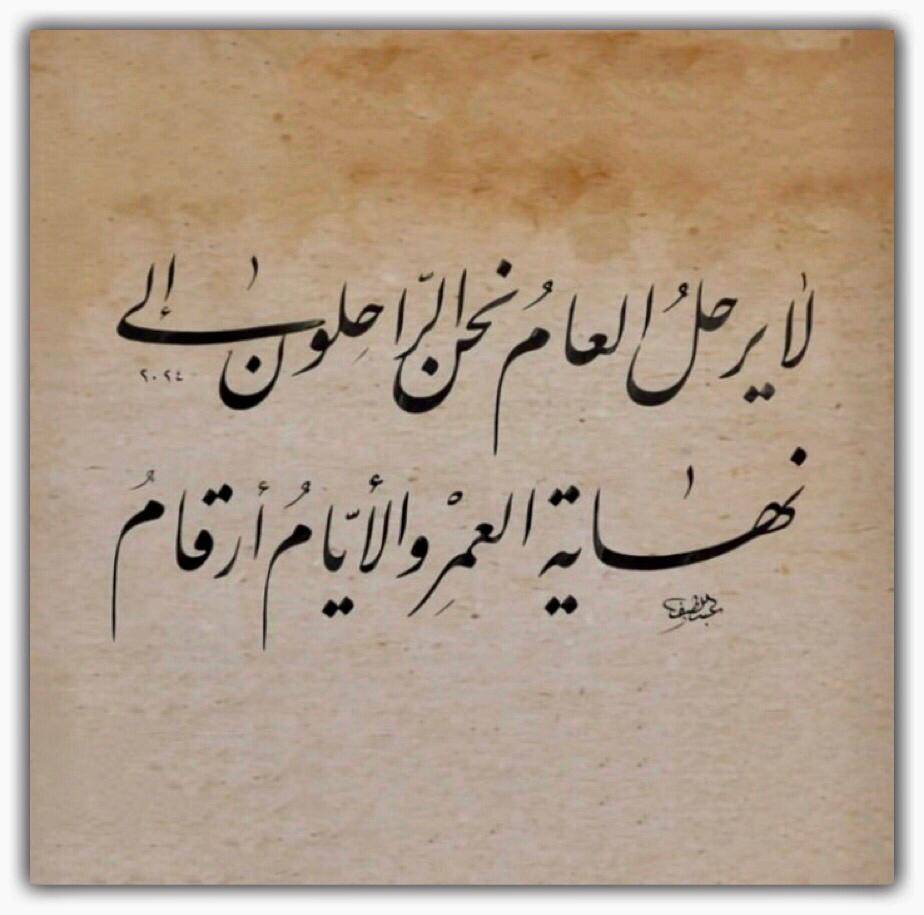 لا يرحلُ العامُ نحن الرّاحِلون إلى
٢٠٢٤
نهاية العمْرِ والأيّامُ أرقامُ